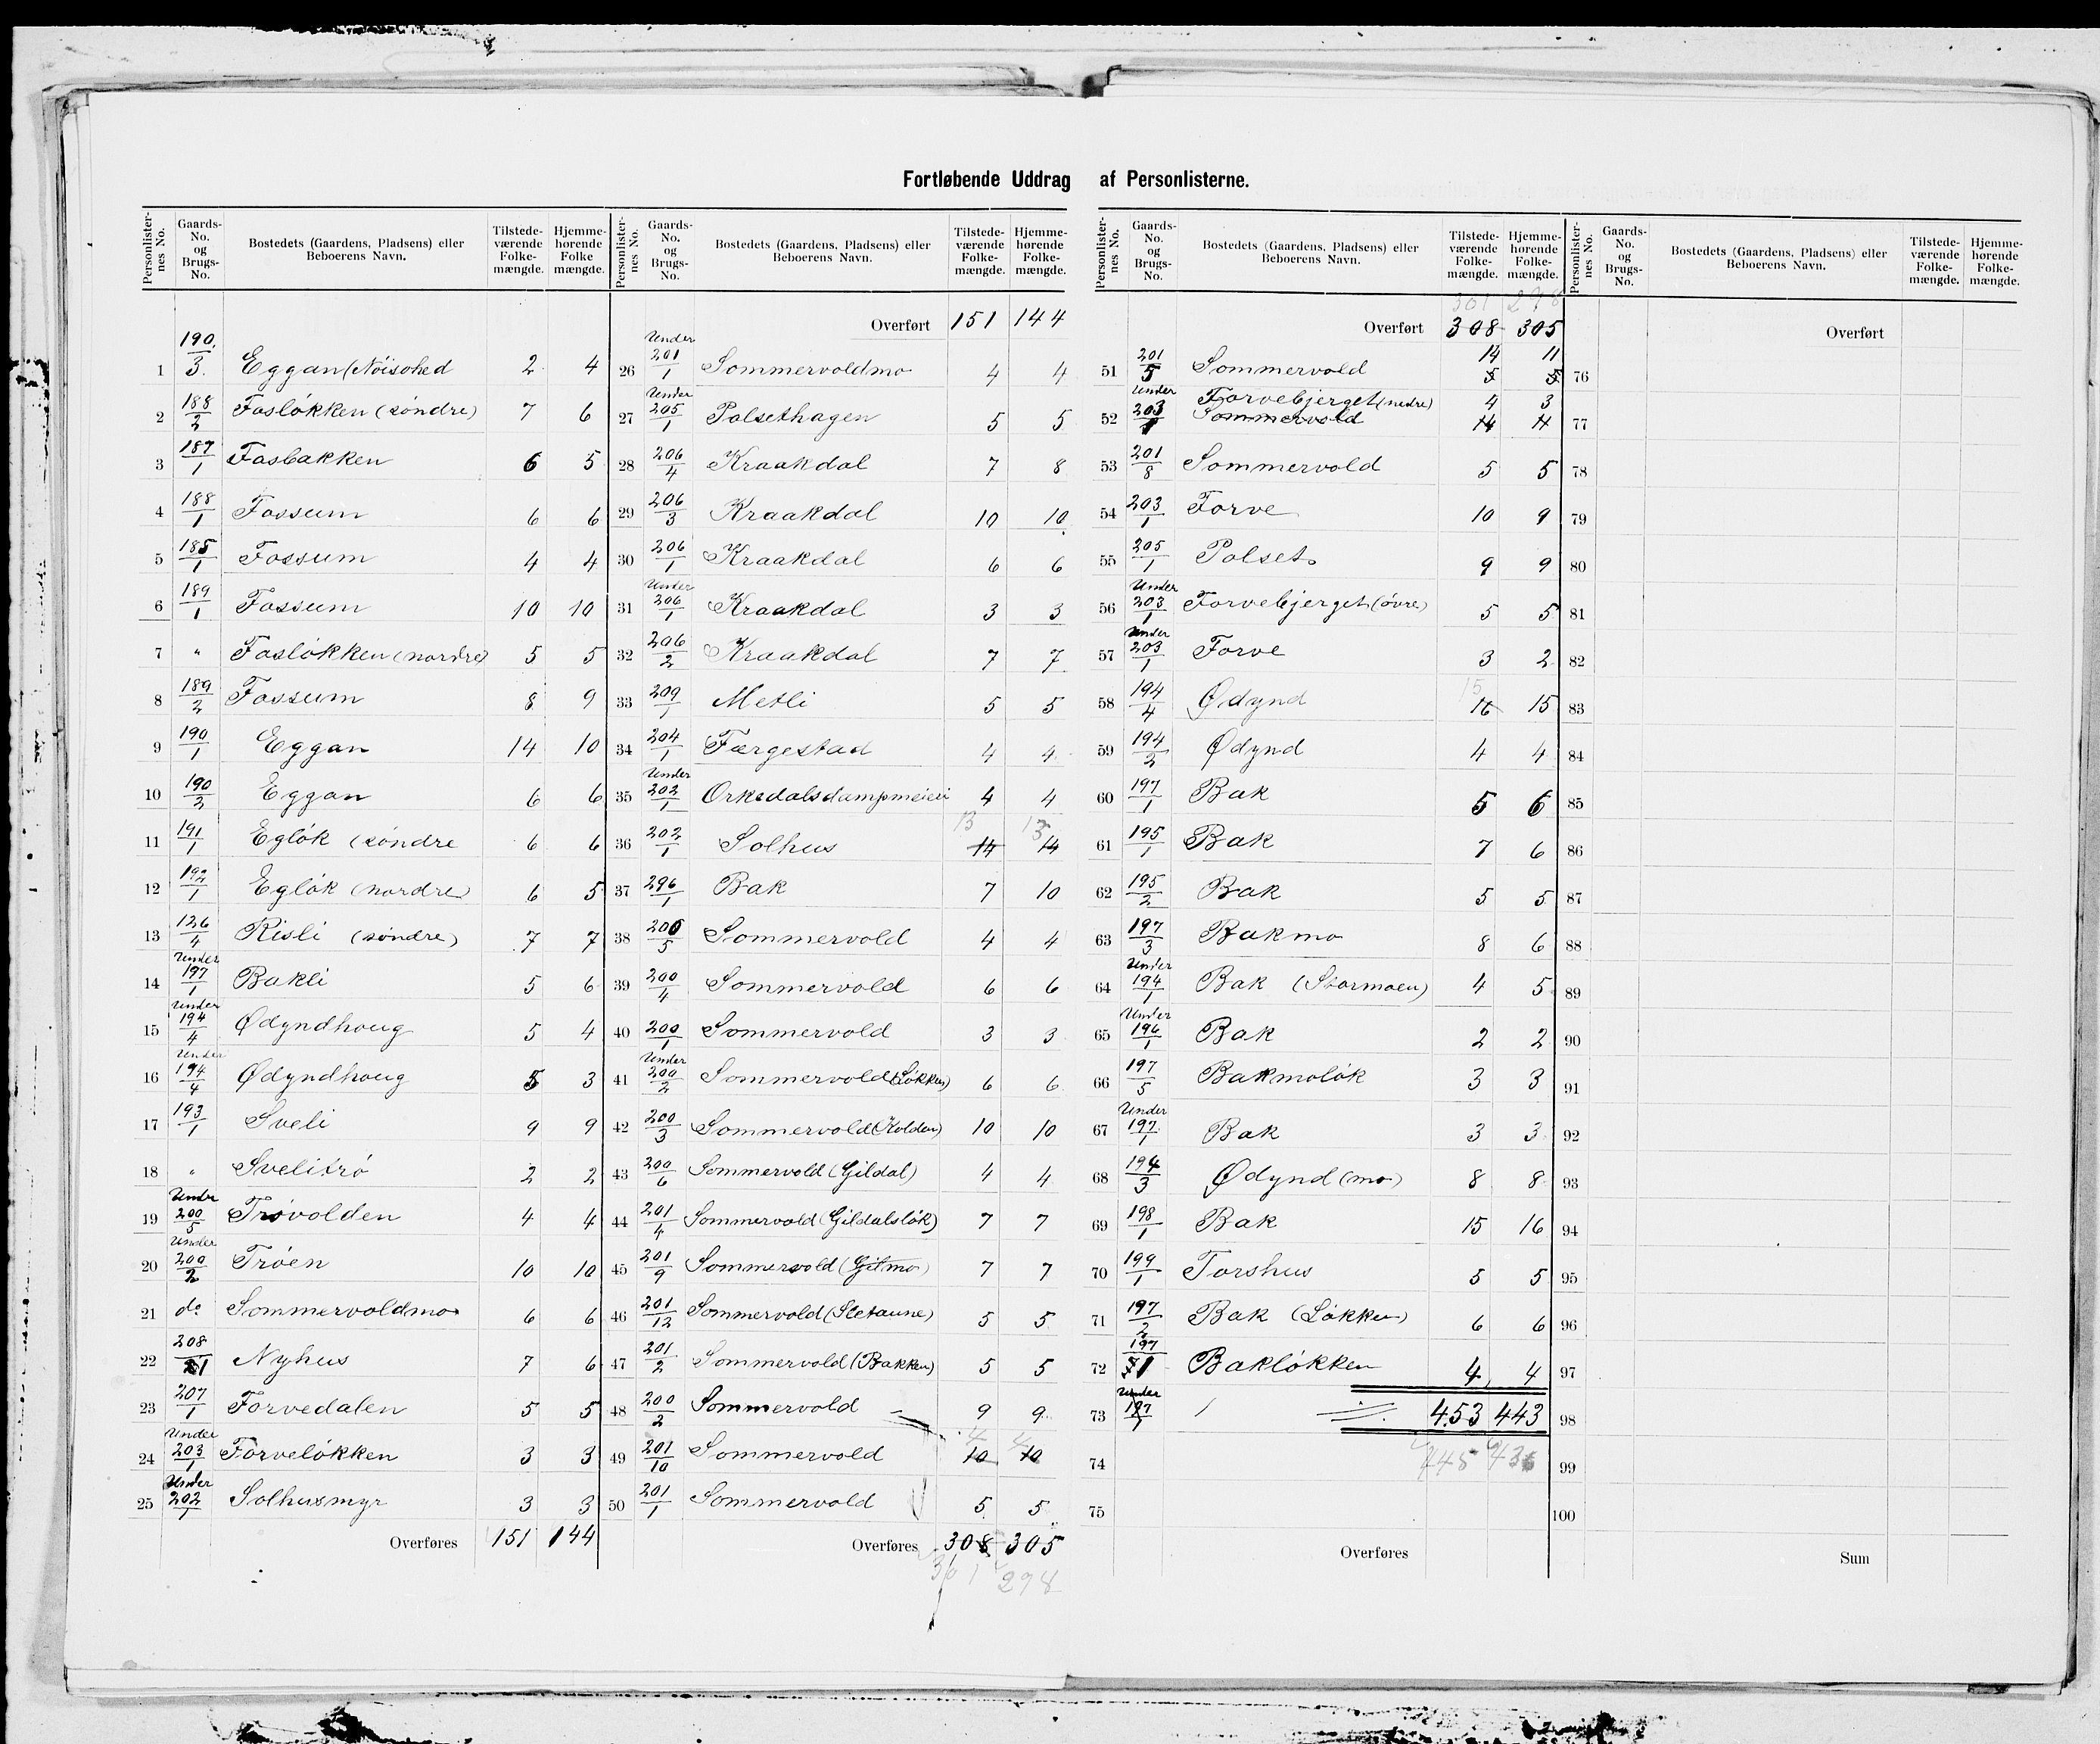 Fortløbende Uddrag af Personlisterne.
Personlisternes No. Gaards-No. og Brugs-No. Bostedets (Gaardens, Pladsens) eller Beboerens Navn. Tilstedeværende Folkemængde. Hjemmehørende Folkemængde.
1 190/3 Eggan (Nöisohed 2 4
2 188/2 Fosløkken (søndre) 7 6
3 187/1 Fosbakken 6 5
4 188/1 Fossum 6 6
5 185/1 Fossum 4 4
6 189/1 Fossum 10 10
7 " Fosløkken (nordre) 5 5
8 189/2 Fossum 8 9
9 190/1 Eggan 14 10
10 190/2 Eggan 6 6
11 191/1 Egløk (søndre 6 6
12 192/1 Egløk (nordre) 6 5
13 126/4 Risli (søndre) 7 7
14 Under 197/1 Bakli 5 6
15 Under 194/4 Ødyndhoug 5 4
16 Under 194/4 Ødyndhoug 5 3
17 193/1 Sveli 9 9
18 " Svelitrö 2 2
19 Under 200/5 Trøvolden 4 4
20 Under 200/2 Trøen 10 10
21 do Sommervoldmo 6 6
22 208/1 Nyhus 7 6
23 207/1 Forvedalen 5 5
24 Under 203/1 Forveløkken 3 3
25 Under 202/1 Solhusmyr 3 3
Overføres 151 144
Personlisternes No. Gaards-No. og Brugs-No. Bostedets (Gaardens, Pladsens) eller Beboerens Navn. Tilstedeværende Folkemængde. Hjemmehørende Folkemængde.
Overført 151 144
26 Under 201/1 Sommervoldmo 4 4
27 Under 205/1 Polsethagen 5 5
28 206/4 Kraakdal 7 8
29 206/3 Kraakdal 10 10
30 206/1 Kraakdal 6 6
31 Under 206/1 Kraakdal 3 3
32 206/2 Kraakdal 7 7
33 209/1 Metli 5 5
34 204/1 Færgestad 4 4
35 Under 202/1 Orkedalsdampmeieri 4 4
13 13
36 202/1 Solhus 14 14
37 296/1 Bak 7 10
38 200/5 Sommervold 4 4
39 200/4 Sommervold 6 6
40 200/1 Sommervold 3 3
41 Under 200/2 Sommervold (Løkken) 6 6
42 200/3 Sommervold (Kolden) 10 10
43 200/6 Sommervold (Gildal) 4 4
44 201/4 Sommervold (Gildalsløk) 7 7
45 201/9 Sommersvold (Gitmo) 7 7
46 201/12 Sommervold (Sletaune) 5 5
47 201/2 Sommervold (Bakken) 5 5
48 200/2 Sommervold 9 9
4 4
49 201/10 Sommervold 10 10
50 201/1 Sommervold 5 5
Overføres 308 305
301 298
Personlisternes No. Gaards-No. og Brugs-No. Bostedets (Gaardens, Pladsens) eller Beboerens Navn. Tilstedeværende Folkemængde. Hjemmehørende Folkemængde.
301 298
Overført 308 305
14 11
51 201/5 Sommervold 5 5
Under Forvebjerget (nedre) 4 3
52 203/1 Sommervold 14 11
53 201/8 Sommervold 5 5
54 203/1 Forve 10 9
55 205/1 Polset 9 9
56 Under 203/1 Forvebjerget (övre) 5 5
57 Under 203/1 Forve 3 2
15
58 194/4 Ødynd 16 15
59 194/2 Ødynd 4 4
60 197/1 Bak 5 6
61 195/1 Bak 7 6
62 195/2 Bak 5 5
63 197/3 Bakmo 8 6
64 Under 194/1 Bak (Stormoen) 4 5
65 Under 196/1 Bak 2 2
66 197/5 Bakmoløk 3 3
67 Under 197/1 Bak 3 3
68 194/3 Ødynd (mo) 8 8
69 198/1 Bak 15 16
70 199/1 Torshus 5 5
71 197/2 Bak (Løkken) 6 6
72 197/1 Bakløkken 4 4
73 Under 197/1 453 443
74 445 436
75
Overføres
Personlisternes No. Gaards-No. og Brugs-No. Bostedets (Gaardens, Pladsens) eller Beboerens Navn. Tilstedeværende Folkemængde. Hjemmehørende Folkemængde.
Overført
76
77
78
79
80
81
82
83
84
85
86
87
88
89
90
91
92
93
94
95
96
97
98
99
100
Sum